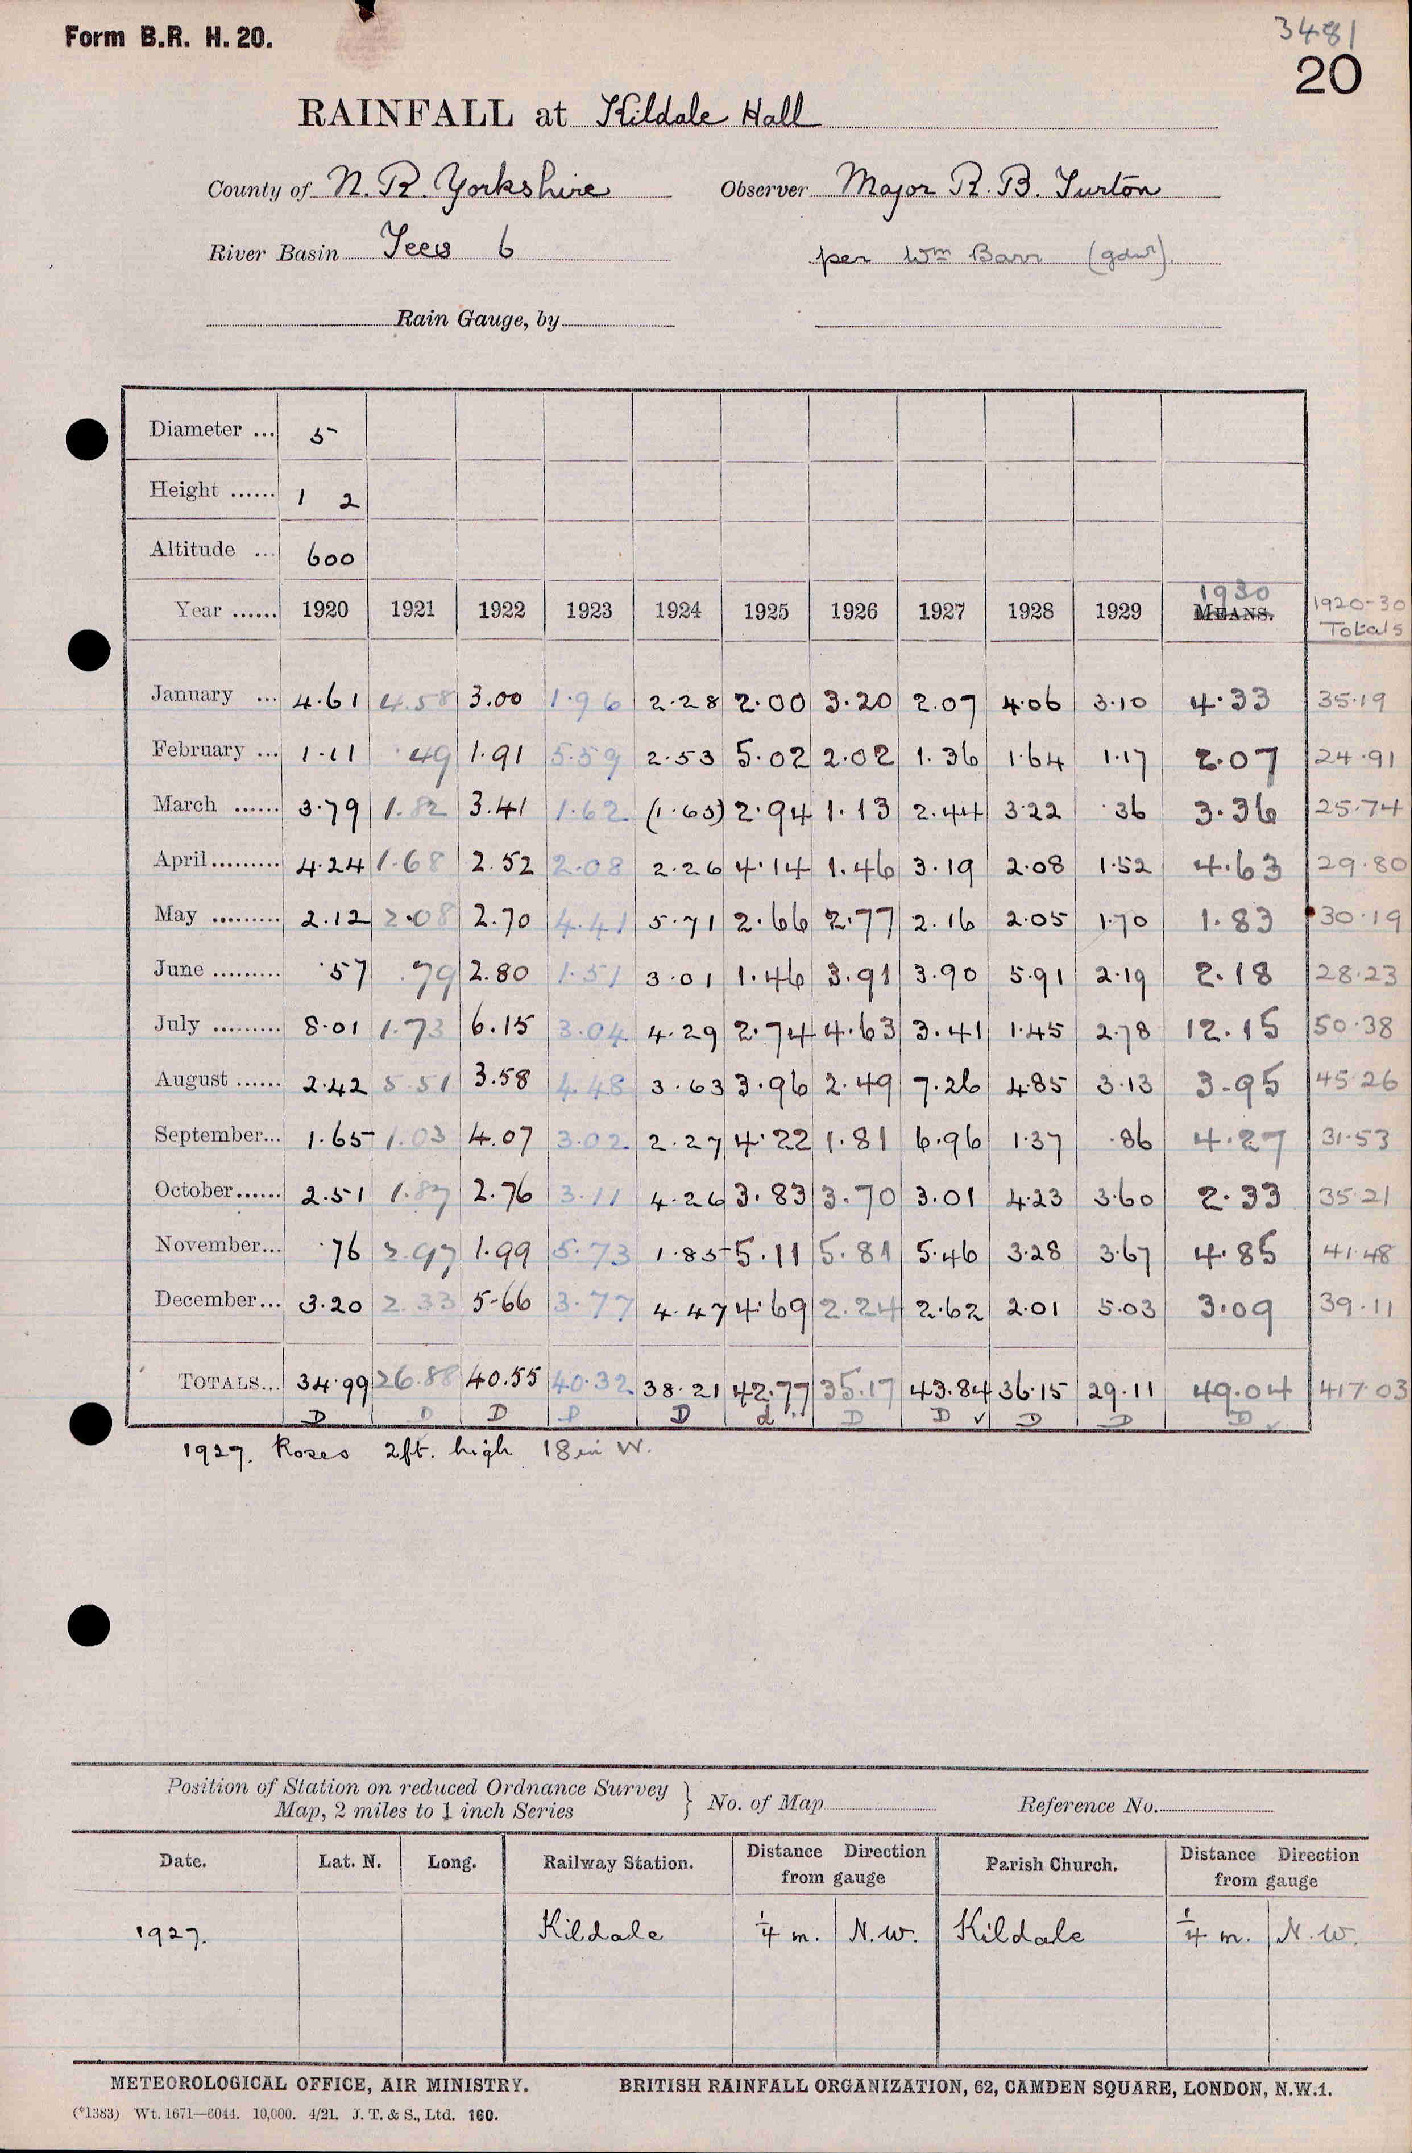 Form B.R. H. 20.
3481
20
RAINFALL at Kildale Hall
County of N. R. Yorkshire Observer Major R. B. Turton
River Basin Tees 6 per Wm Barr (gdnr)
Rain Gauge, by
Diameter ... 5
Height ...... 1 2
Altitude ... 600
Year ...... 1920 1921 1922 1923 1924 1925 1926 1927 1928 1929 1930 MEANS. 1920-30 Totals
January ... 4.61 4.58 3.00 1.96 2.28 2.00 3.20 2.07 4.06 3.10 4.33 35.19
February ... 1.11 .49 1.91 5.59 2.53 5.02 2.02 1.36 1.64 1.17 2.07 24.91
March ...... 3.79 1.82 3.41 1.62 (1.65) 2.94 1.13 2.44 3.22 .36 3.36 25.74
April ......... 4.24 1.68 2.52 2.08 2.26 4.14 1.46 3.19 2.08 1.52 4.63 29.80
May ......... 2.12 2.08 2.70 4.41 5.71 2.66 2.77 2.16 2.05 1.70 1.83 30.19
June ......... .57 .79 2.80 1.51 3.01 1.46 3.91 3.90 5.91 2.19 2.18 28.23
July ......... 8.01 1.73 6.15 3.04 4.29 2.74 4.63 3.41 1.45 2.78 12.15 50.38
August ...... 2.42 5.51 3.58 4.48 3.63 3.96 2.49 7.26 4.85 3.13 3.95 45.26
September... 1.65 1.03 4.07 3.02 2.27 4.22 1.81 6.96 1.37 .86 4.27 31.53
October...... 2.51 1.87 2.76 3.11 4.26 3.83 3.70 3.01 4.23 3.60 2.33 35.21
November... .76 2.97 1.99 5.73 1.85 5.11 5.81 5.46 3.28 3.67 4.85 41.48
December... 3.20 2.33 5.66 3.77 4.47 4.69 2.24 2.62 2.01 5.03 3.09 39.11
TOTALS... 34.99 26.88 40.55 40.32 38.21 42.77 35.17 43.84 36.15 29.11 49.04 417.03
D D D D D d D D ✓ D D D ✓
1927. Roses 2ft. high 18 in W.
Position of Station on reduced Ordnance Survey
Map, 2 miles to 1 inch Series } No. of Map Reference No.
Date. Lat. N. Long. Railway Station. Distance Direction from gauge Parish Church. Distance Direction from gauge
1927. Kildale 1/4 m. N.W. Kildale 1/4 m. N.W.
METEOROLOGICAL OFFICE, AIR MINISTRY. BRITISH RAINFALL ORGANIZATION, 62, CAMDEN SQUARE, LONDON, N.W.1.
(*1383) Wt. 1671—6044. 10,000. 4/21. J. T. & S., Ltd. 160.